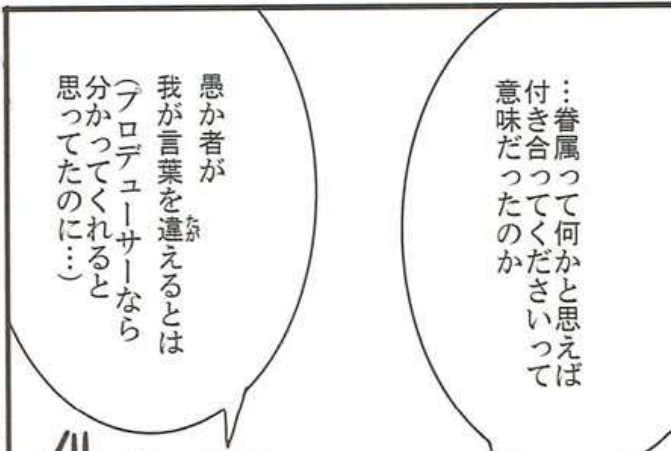 …眷属って何かと思えば
付き合ってくださいって
意味だったのか
愚か者が
我が言葉を違えるとは
たが
(プロデューサーなら
分かってくれると
思ってたのに…)